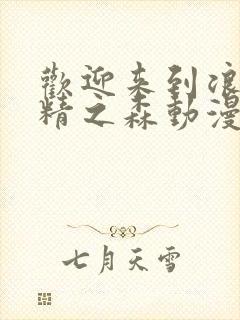 歡迎来到浪
精之森動漫
七月天雪